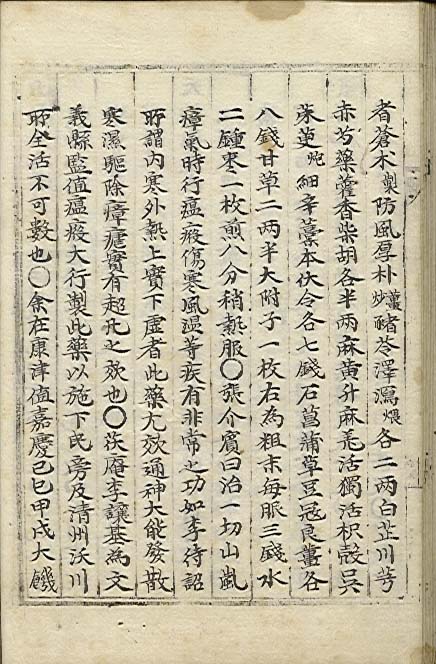 者蒼木製防風厚朴薑炒豬苓澤瀉煨各二兩○白芷川芎
赤芍藥藿香柴胡各半兩麻黃升麻羌活獨活枳殼吳
茱萸炮細辛藁本伏令各七錢石菖蒲草豆冦良薑各
八錢甘草二兩半大附子一枚右為粗末每服三錢水
二鍾枣一枚煎八分稍熱服○張介賓曰治一切山嵐
瘴氣時行瘟疫傷寒風溫等疾有非常之功如李待詔
所謂內寒外熱上實下虛者此藥尤效通神大能發散
寒濕驅除瘴瘧實有起死之效也○茯庵李讓基為文
義縣監值瘟疫大行製此藥以施下民旁及清州沃川
所全活不可數也○余在康津值嘉慶己巳甲戌大饑